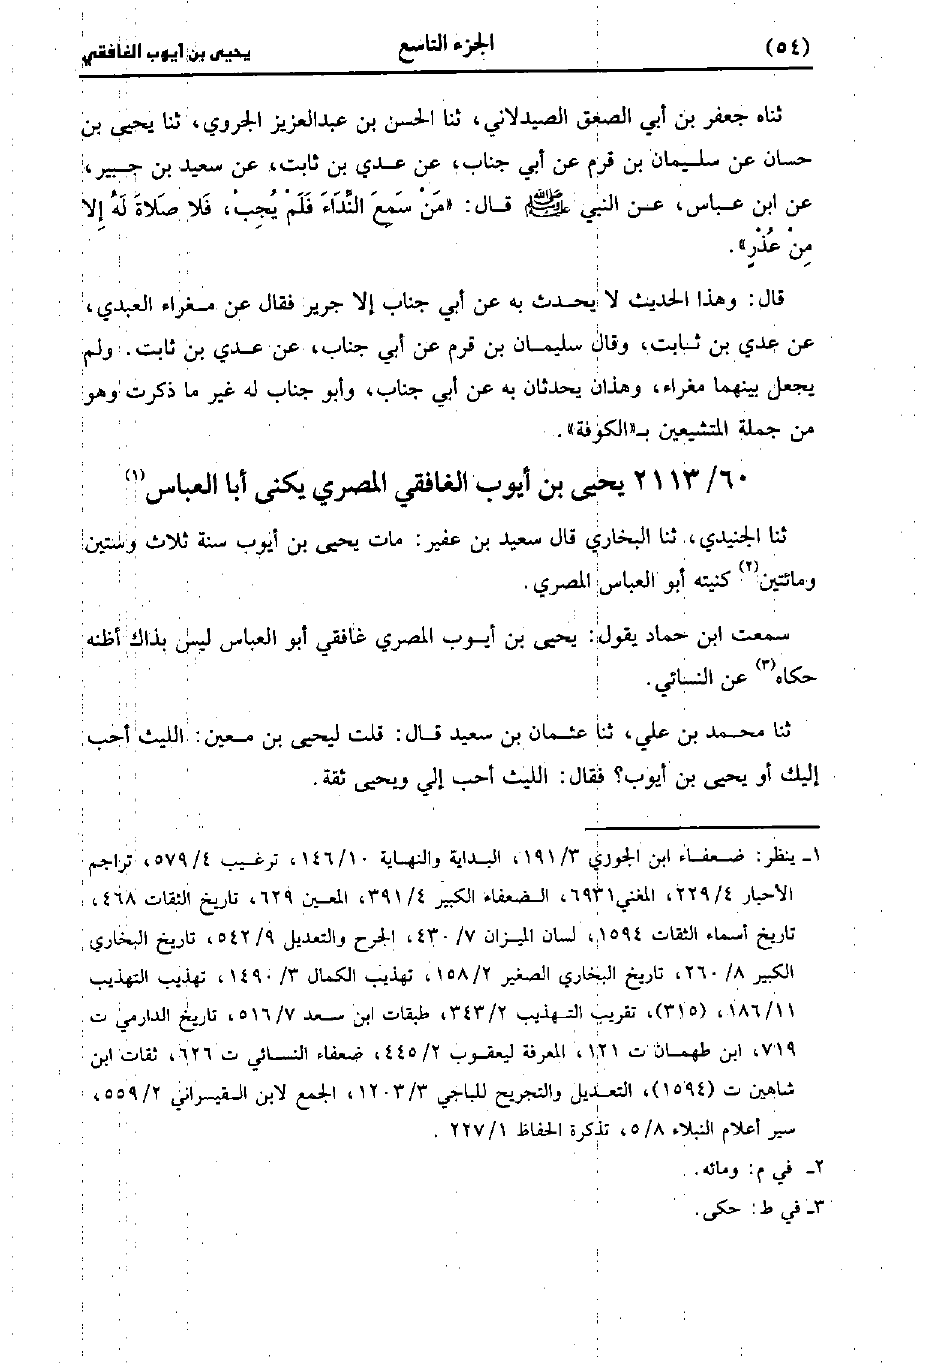 (٥٤) الجزء التاسع يحيى بن أيوب الغافقي
ثناه جعفر بن أبي الصعق الصيدلاني، ثنا الحسن بن عبدالعزيز الجروي، ثنا يحيى بن
حسان عن سليمان بن قرم عن أبي جناب، عن عدي بن ثابت، عن سعيد بن جبير،
عن ابن عباس، عن النبي ﷺ قال: «مَنْ سَمِعَ النِّدَاءَ فَلَمْ يُجِبْ، فَلا صَلاةَ لَهُ إلا
مِنْ عُذْرٍ».
قال: وهذا الحديث لا يحدث به عن أبي جناب إلا جرير فقال عن مغراء العبدي،
عن عدي بن ثابت، وقال سليمان بن قرم عن أبي جناب، عن عدي بن ثابت. ولم
يجعل بينهما مغراء، وهذان يحدثان به عن أبي جناب، وأبو جناب له غير ما ذكرت وهو
من جملة المتشيعين بـ«الكوفة».
٢١١٣/٦٠ يحيى بن أيوب الغافقي المصري يكنى أبا العباس(١)
ثنا الجنيدي، ثنا البخاري قال سعيد بن عفير: مات يحيى بن أيوب سنة ثلاث وستين
ومائتين(٢) كنيته أبو العباس المصري.
سمعت ابن حماد يقول: يحيى بن أيوب المصري غافقي أبو العباس ليس بذاك أظنه
حكاه(٣) عن النسائي.
ثنا محمد بن علي، ثنا عثمان بن سعيد قال: قلت ليحيى بن معين: الليث أحب
إليك أو يحيى بن أيوب؟ فقال: الليث أحب إلي ويحيى ثقة.
١ـ ينظر: ضعفاء ابن الجوزي ١٩١/٣، البداية والنهاية ١٤٦/١٠، ترغيب ٥٧٩/٤، تراجم
الأحبار ٢٢٩/٤، المغني ٦٩٣١، الضعفاء الكبير ٣٩١/٤، المعين ٦٢٩، تاريخ الثقات ٤٦٨،
تاريخ أسماء الثقات ١٥٩٤، لسان الميزان ٤٣٠/٧، الجرح والتعديل ٥٤٢/٩، تاريخ البخاري
الكبير ٢٦٠/٨، تاريخ البخاري الصغير ١٥٨/٢، تهذيب الكمال ١٤٩٠/٣، تهذيب التهذيب
١٨٦/١١، (٣١٥)، تقريب التهذيب ٣٤٣/٢، طبقات ابن سعد ٥١٦/٧، تاريخ الدارمي ت
٧١٩، ابن طهمان ت ١٢١، المعرفة ليعقوب ٤٤٥/٢، ضعفاء النسائي ت ٦٢٦، ثقات ابن
شاهين ت (١٥٩٤)، التعديل والتجريح للباجي ١٢٠٣/٣، الجمع لابن القيسراني ٥٥٩/٢،
سير أعلام النبلاء ٥/٨، تذكرة الحفاظ ٢٢٧/١.
٢ـ في م: ومائه.
٣ـ في ط: حكى.